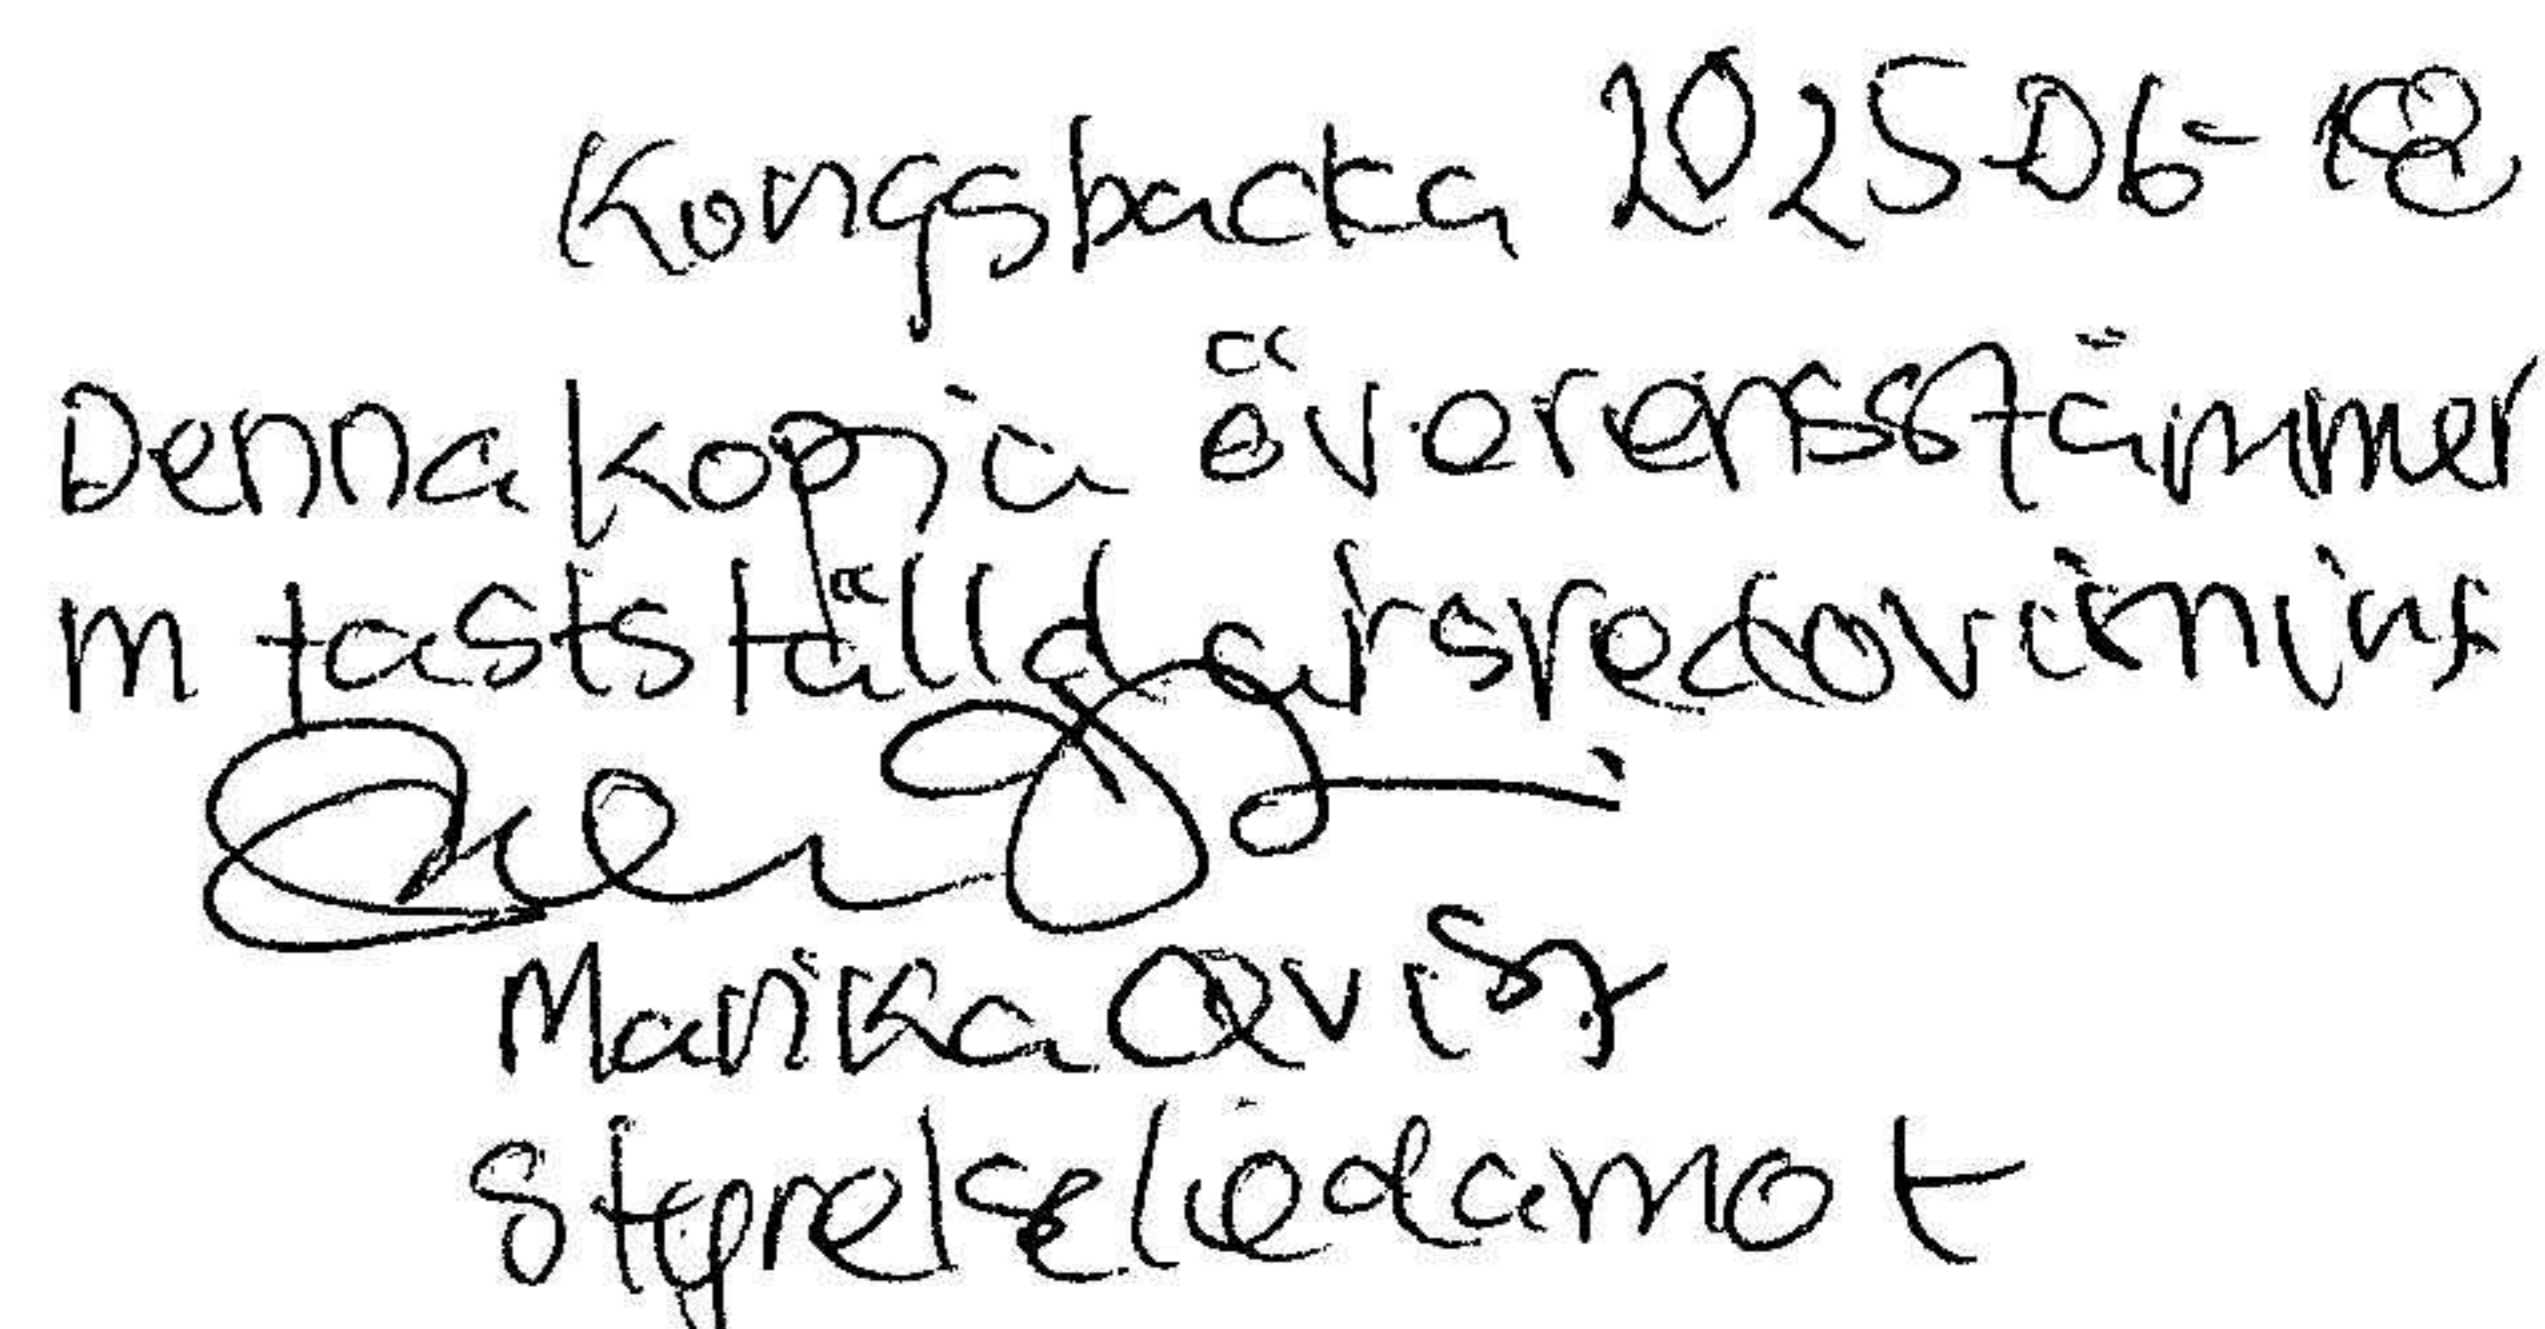 Kongsbacka 2025-06-18
Denna kopia överensstämmer
m fastställd årsredovisning
Marika Qvist
Styrelseledamot